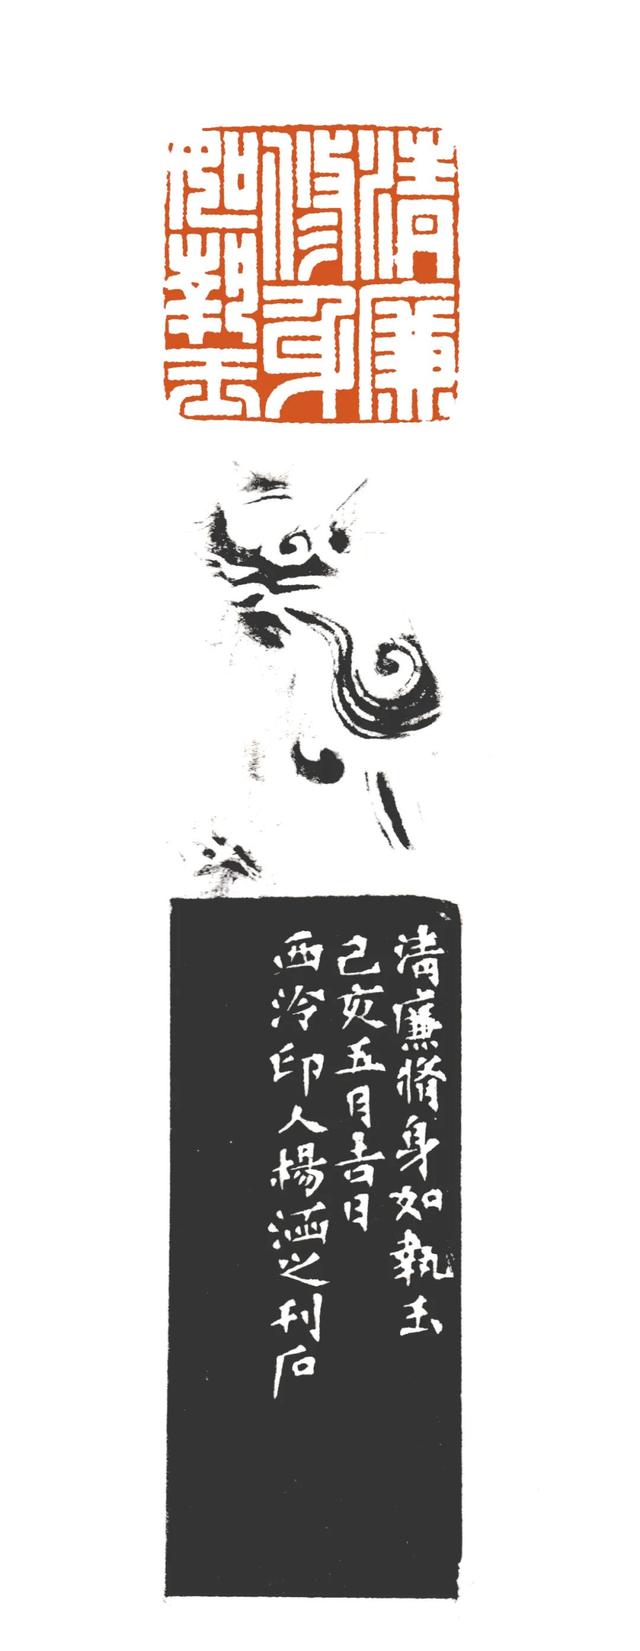 清廉
修身
如執玉
清廉脩身如執玉
己亥五月吉日
西泠印人楊涵之刊石